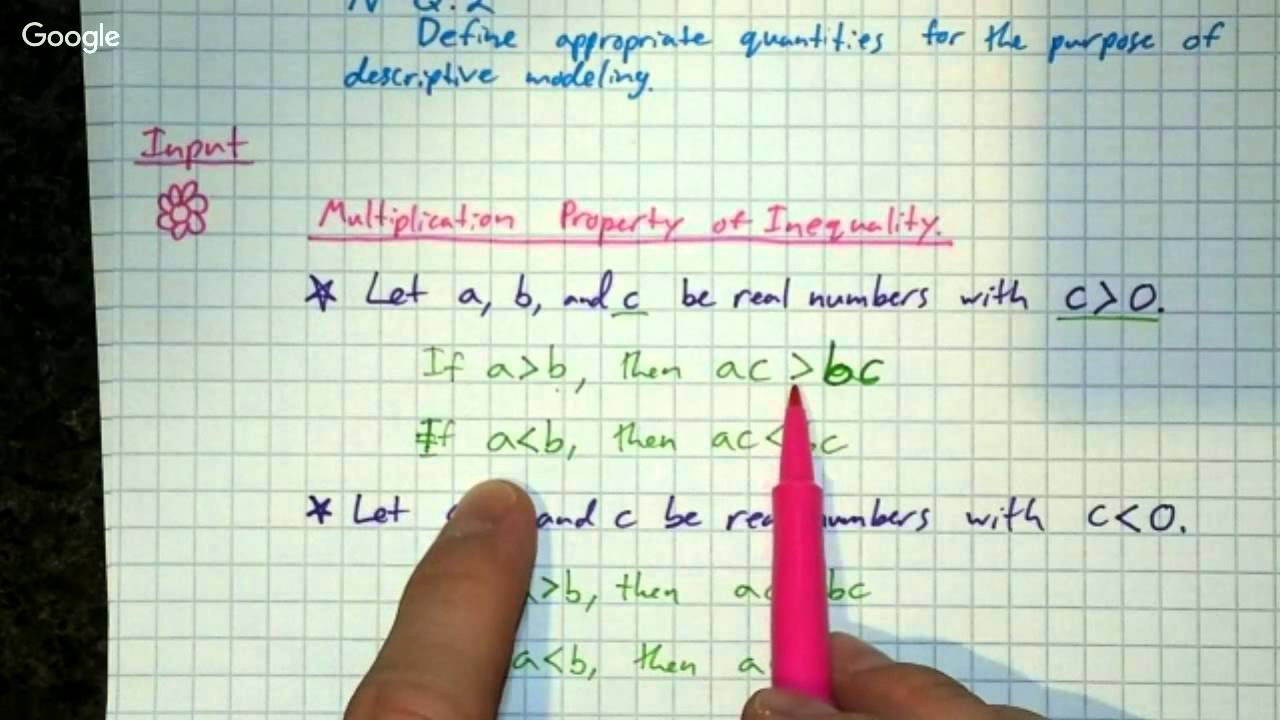 Google
Q.2
Define appropriate quantities for the purpose of
descriptive modeling.
Input
Multiplication Property of Inequality.
* Let a, b, and c be real numbers with c > 0.
If a > b, then ac > bc
If a < b, then ac < bc
* Let and c be real numbers with c < 0.
> b, then bc
a < b, then a